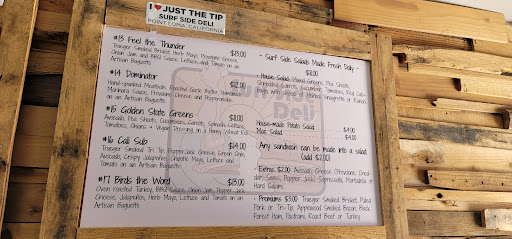 I ♥ JUST THE TIP
SURF SIDE DELI
POINT LOMA, CALIFORNIA
#13 Feel the Thunder $13.00
Traeger Smoked Brisket, Herb Mayo, Provolone Cheese,
Onion Jam and BBQ Sauce, Lettuce, and Tomato on an
Artisan Baguette
#14 Dominator $12.00
Hand-smashed Meatballs, Roasted Garlic Butter,
Marinara Sauce, Provolone Cheese and Pepperoncini
Artisan Baguette
#15 Golden State Greens $11.00
Avocado, Pea Shoots, Cucumbers, Carrots, Spinach, Lettuce,
Tomatoes, Onions + Vegan Dressing on a Honey Wheat
#16 Cali Sub $14.00
Traeger Smoked Tri Tip, Pepper Jack Cheese,
Avocado, Crispy Jalapeños, Chipotle Mayo, Lettuce and
Tomato on an Artisan Baguette
#17 Birds the Word $13.00
Oven roasted Turkey, BBQ Sauce, Onion Jam, Pepper Jack
Cheese, Jalapeños, Herb Mayo, Lettuce and Tomato on an
Artisan Baguette
- Surf Side Salads Made Fresh Daily -
$8.00
House Salad: Mixed Greens, Pea Shoots,
Shredded Carrots, Cucumber, Tomatoes, Red
Deli
House-made Potato Salad $4.00
Mac Salad $4.00
Any sandwich can be made into a salad
(add $2.00)
- Extras $2.00 Avocado, Cheese (Provolone,
Swiss, Pepper Jack), Mortadella or
Hard Salami
- Premiums $3.00 Traeger Smoked Brisket, Pulled
Pork or Tri-Tip, Applewood Smoked Bacon, Black
Forest Ham, Pastrami, Roast Beef or Turkey